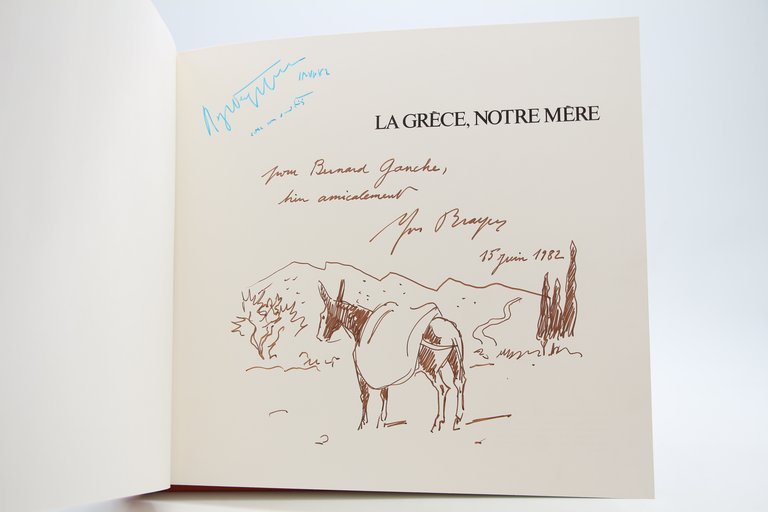 LA GRÈCE, NOTRE MÈRE
pour Bernard Ganche,
bien amicalement
Yves Brayer
15 juin 1982